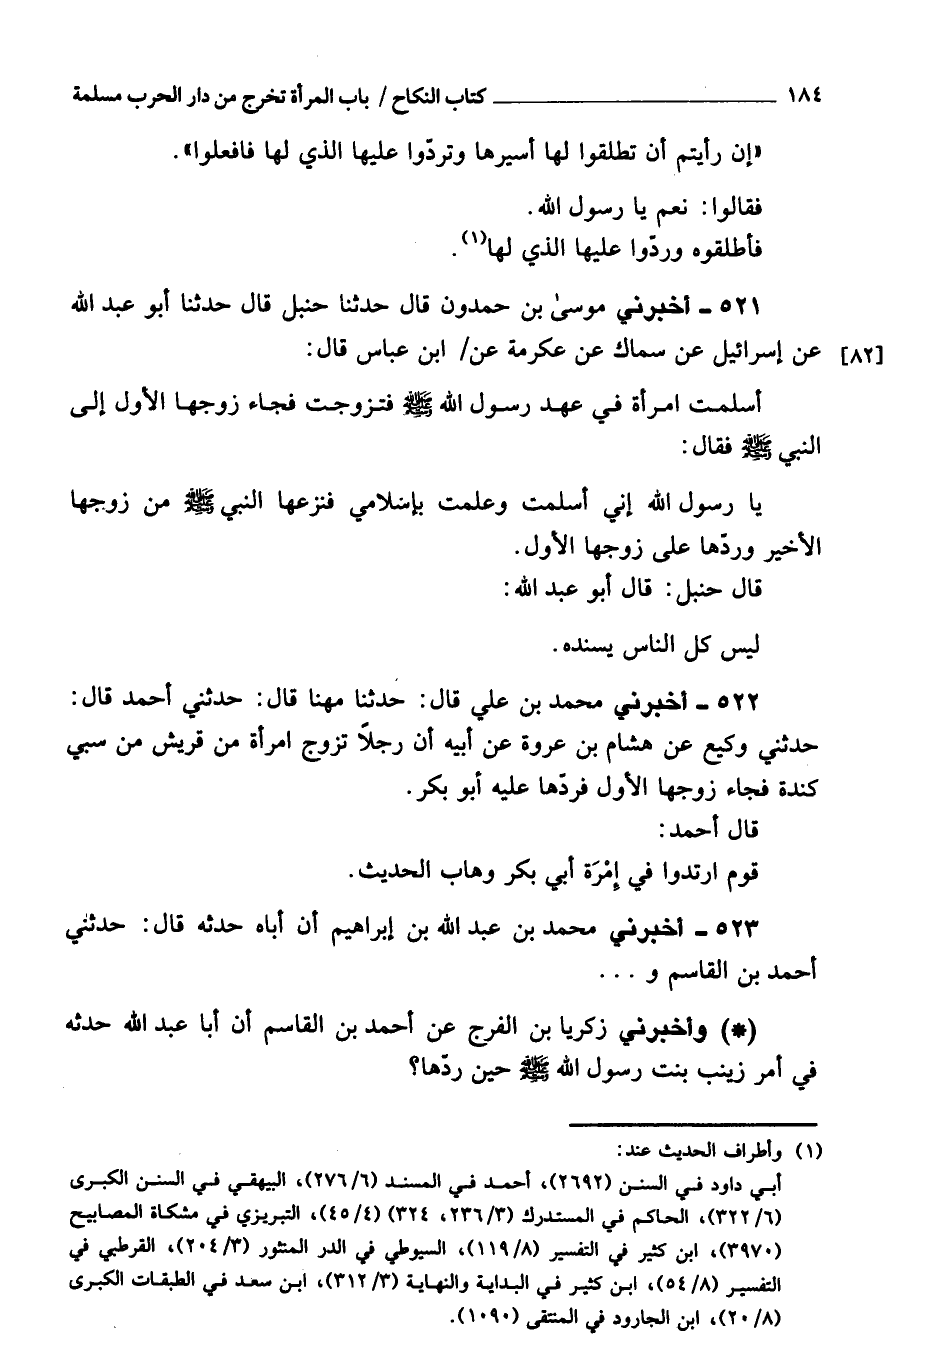 ١٨٤ ــــــــــــــــــــ كتاب النكاح / باب المرأة تخرج من دار الحرب مسلمة
«إن رأيتم أن تطلقوا لها أسيرها وتردّوا عليها الذي لها فافعلوا».
فقالوا: نعم يا رسول الله.
فأطلقوه وردّوا عليها الذي لها(١).
٥٢١ - أخبرني موسىٰ بن حمدون قال حدثنا حنبل قال حدثنا أبو عبد الله
[٨٢] عن إسرائيل عن سماك عن عكرمة عن/ ابن عباس قال:
أسلمت امرأة في عهد رسول الله ﷺ فتزوجت فجاء زوجها الأول إلى
النبي ﷺ فقال:
يا رسول الله إني أسلمت وعلمت بإسلامي فنزعها النبي ﷺ من زوجها
الأخير وردّها على زوجها الأول.
قال حنبل: قال أبو عبد الله:
ليس كل الناس يسنده.
٥٢٢ - أخبرني محمد بن علي قال: حدثنا مهنا قال: حدثني أحمد قال:
حدثني وكيع عن هشام بن عروة عن أبيه أن رجلاً تزوج امرأة من قريش من سبي
كندة فجاء زوجها الأول فردّها عليه أبو بكر.
قال أحمد:
قوم ارتدوا في إِمْرَة أبي بكر وهاب الحديث.
٥٢٣ - أخبرني محمد بن عبد الله بن إبراهيم أن أباه حدثه قال: حدثني
أحمد بن القاسم و ...
(*) وأخبرني زكريا بن الفرج عن أحمد بن القاسم أن أبا عبد الله حدثه
في أمر زينب بنت رسول الله ﷺ حين ردّها؟
(١) وأطراف الحديث عند:
أبي داود في السنن (٢٦٩٢)، أحمد في المسند (٢٧٦/٦)، البيهقي في السنن الكبرى
(٣٢٢/٦)، الحاكم في المستدرك (٢٣٦/٣، ٣٢٤) (٤٥/٤)، التبريزي في مشكاة المصابيح
(٣٩٧٠)، ابن كثير في التفسير (١١٩/٨)، السيوطي في الدر المنثور (٢٠٤/٣)، القرطبي في
التفسير (٥٤/٨)، ابن كثير في البداية والنهاية (٣١٢/٣)، ابن سعد في الطبقات الكبرى
(٢٠/٨)، ابن الجارود في المنتقى (١٠٩٠).